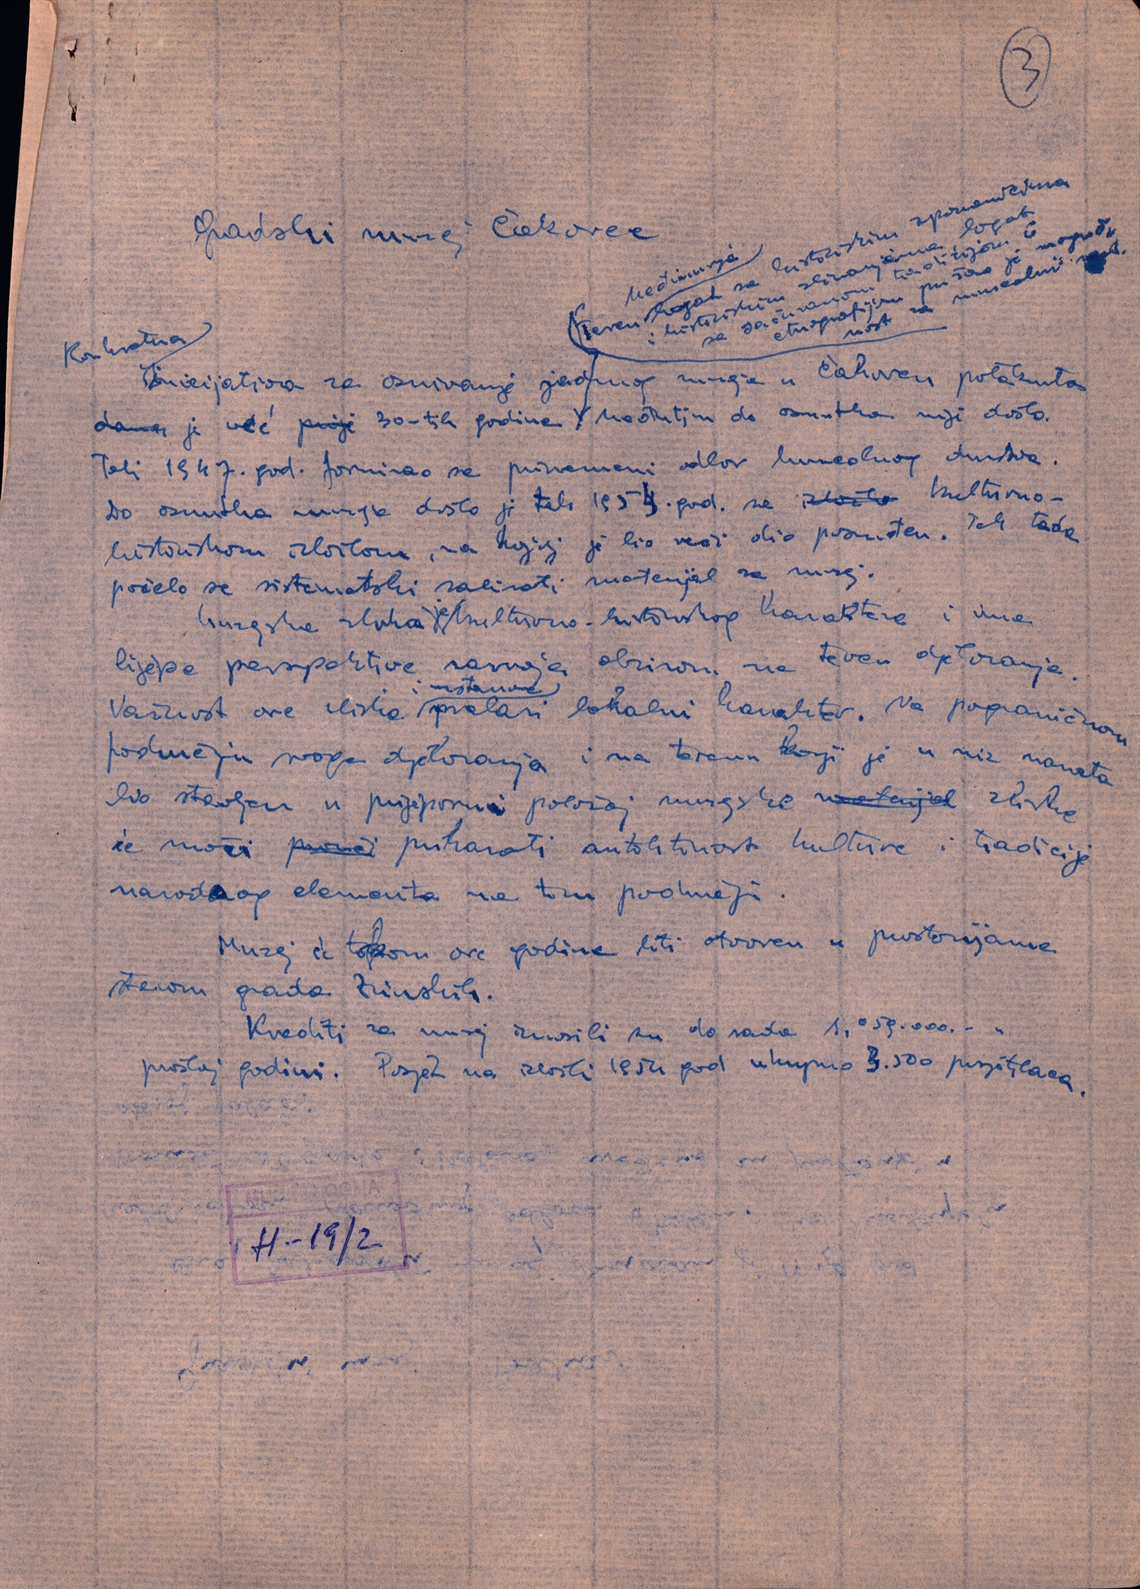 3
Gradski muzej Čakovec
Međimurja
Teren bogat sa historiskim spomenicima
i historiskim zbivanjima bogat
sa sačuvanom tradicijom i
etnografijom pružao je moguć
nost za muzealni
Konkretna
inicijativa za osnivanje jednog muzeja u Čakovcu potaknuta
dana je već prije 30-tih godina Međutim do osnutka nije došlo.
Tek 1947. god. formirao se privremeni odbor muzealnog društva.
Do osnutka muzeja došlo je tek 1954. god. sa izložb kulturno-
historiskom izložbom, na kojoj je bio veći dio posuđen. Tek tada
počelo se sistematski sabirati materijal za muzej.
Muzejska zbirka je kulturno-historiskog karaktera i ima
lijepe perspektive razvoja obzirom na teren djelovanja.
i ustanove
Važnost ove zbirke prelazi lokalni karakter. Na pograničnom
području svoga djelovanja i na terenu koji je u niz navrata
bio stavljen u prijeporni položaj muzejske materijal zbirke
će moći prikazati autohtonost kulture i tradicije
narodnog elementa na tom području.
Muzej će tokom ove godine biti otvoren u prostorijama
starom grada Zrinskih.
Krediti za muzej iznosili su do sada 1.059.000.- u
prošloj godini. Posjet na izložbi 1954 god ukupno 3.500 posjetilaca.
H-19/2